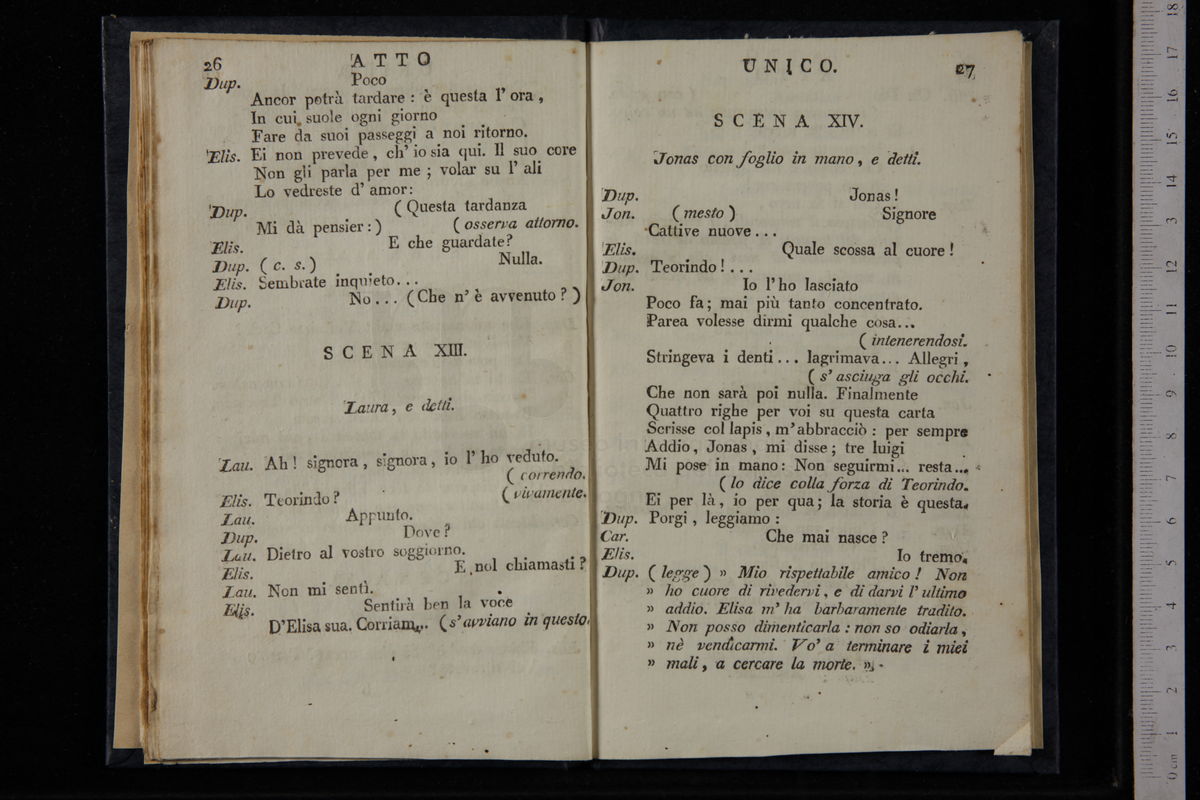 26 ATTO
Dup. Poco
Ancor potrà tardare : è questa l' ora ,
In cui suole ogni giorno
Fare da suoi passeggi a noi ritorno.
Elis. Ei non prevede , ch' io sia qui. Il suo core
Non gli parla per me ; volar su l' ali
Lo vedreste d' amor :
Dup. ( Questa tardanza
Mi dà pensier : ) ( osserva attorno.
Elis. E che guardate ?
Dup. ( c. s. ) Nulla.
Elis. Sembrate inquieto. . .
Dup. No . . . ( Che n' è avvenuto ? )
SCENA XIII.
Laura , e detti.
Lau. Ah ! signora , signora , io l' ho veduto.
( correndo.
Elis. Teorindo ? ( vivamente.
Lau. Appunto.
Dup. Dove ?
Lau. Dietro al vostro soggiorno.
Elis. E nol chiamasti ?
Lau. Non mi sentì.
Elis. Sentirà ben la voce
D'Elisa sua. Corriam... ( s' avviano in questo.
UNICO. 27
SCENA XIV.
Jonas con foglio in mano , e detti.
Dup. Jonas !
Jon. ( mesto ) Signore
Cattive nuove . . .
Elis. Quale scossa al cuore !
Dup. Teorindo ! . . .
Jon. Io l' ho lasciato
Poco fa ; mai più tanto concentrato.
Parea volesse dirmi qualche cosa...
( intenerendosi.
Stringeva i denti . . . lagrimava . . . Allegri ,
( s' asciuga gli occhi.
Che non sarà poi nulla. Finalmente
Quattro righe per voi su questa carta
Scrisse col lapis , m' abbracciò : per sempre
Addio , Jonas , mi disse ; tre luigi
Mi pose in mano : Non seguirmi... resta...
( lo dice colla forza di Teorindo.
Ei per là , io per qua ; la storia è questa.
Dup. Porgi , leggiamo :
Car. Che mai nasce ?
Elis. Io tremo.
Dup. ( legge ) » Mio rispettabile amico ! Non
» ho cuore di rivedervi , e di darvi l' ultimo
» addio. Elisa m' ha barbaramente tradito.
» Non posso dimenticarla : non so odiarla ,
» nè vendicarmi. Vo' a terminare i miei
» mali , a cercare la morte. »
0 cm 1 2 3 4 5 6 7 8 9 10 11 12 13 14 15 16 17 18